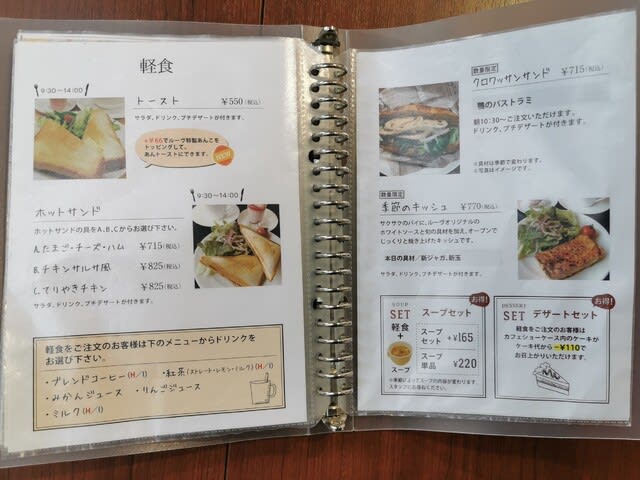 軽食
9:30~14:00
トースト ¥550(税込)
サラダ、ドリンク、プチデザートが付きます。
+¥66でルーヴ特製あんこを
トッピングして、
あんトーストにできます。
9:30~14:00
ホットサンド
ホットサンドの具をA、B、Cからお選び下さい。
A.たまご・チーズ・ハム ¥715(税込)
B.チキンサルサ風 ¥825(税込)
C.てりやきチキン ¥825(税込)
サラダ、ドリンク、プチデザートが付きます。
軽食をご注文のお客様は下のメニューからドリンクを
お選び下さい。
・ブレンドコーヒー(H/I) ・紅茶(ストレート・レモン・ミルク)(H/I)
・みかんジュース ・りんごジュース
・ミルク(H/I)
数量限定
クロワッサンサンド ¥715(税込)
鴨のパストラミ
朝10:30~ご注文いただけます。
ドリンク、プチデザートが付きます。
※具材は季節で変わります。
※写真はイメージです。
数量限定
季節のキッシュ ¥770(税込)
サクサクのパイに、ルーヴオリジナルの
ホワイトソースと旬の具材を加え、オーブンで
じっくりと焼き上げたキッシュです。
本日の具材/新ジャガ、新玉
サラダ、ドリンク、プチデザートが付きます。
お得!
SOUP
SET スープセット
軽食
+
スープ
スープ
セット +¥165
スープ
単品 ¥220
※季節によってスープの内容が変わります。
スタッフにお尋ねください。
お得!
DESSERT
SET デザートセット
軽食をご注文のお客様は
カフェショーケース内のケーキが
ケーキ代から−¥110で
お召上がりいただけます。